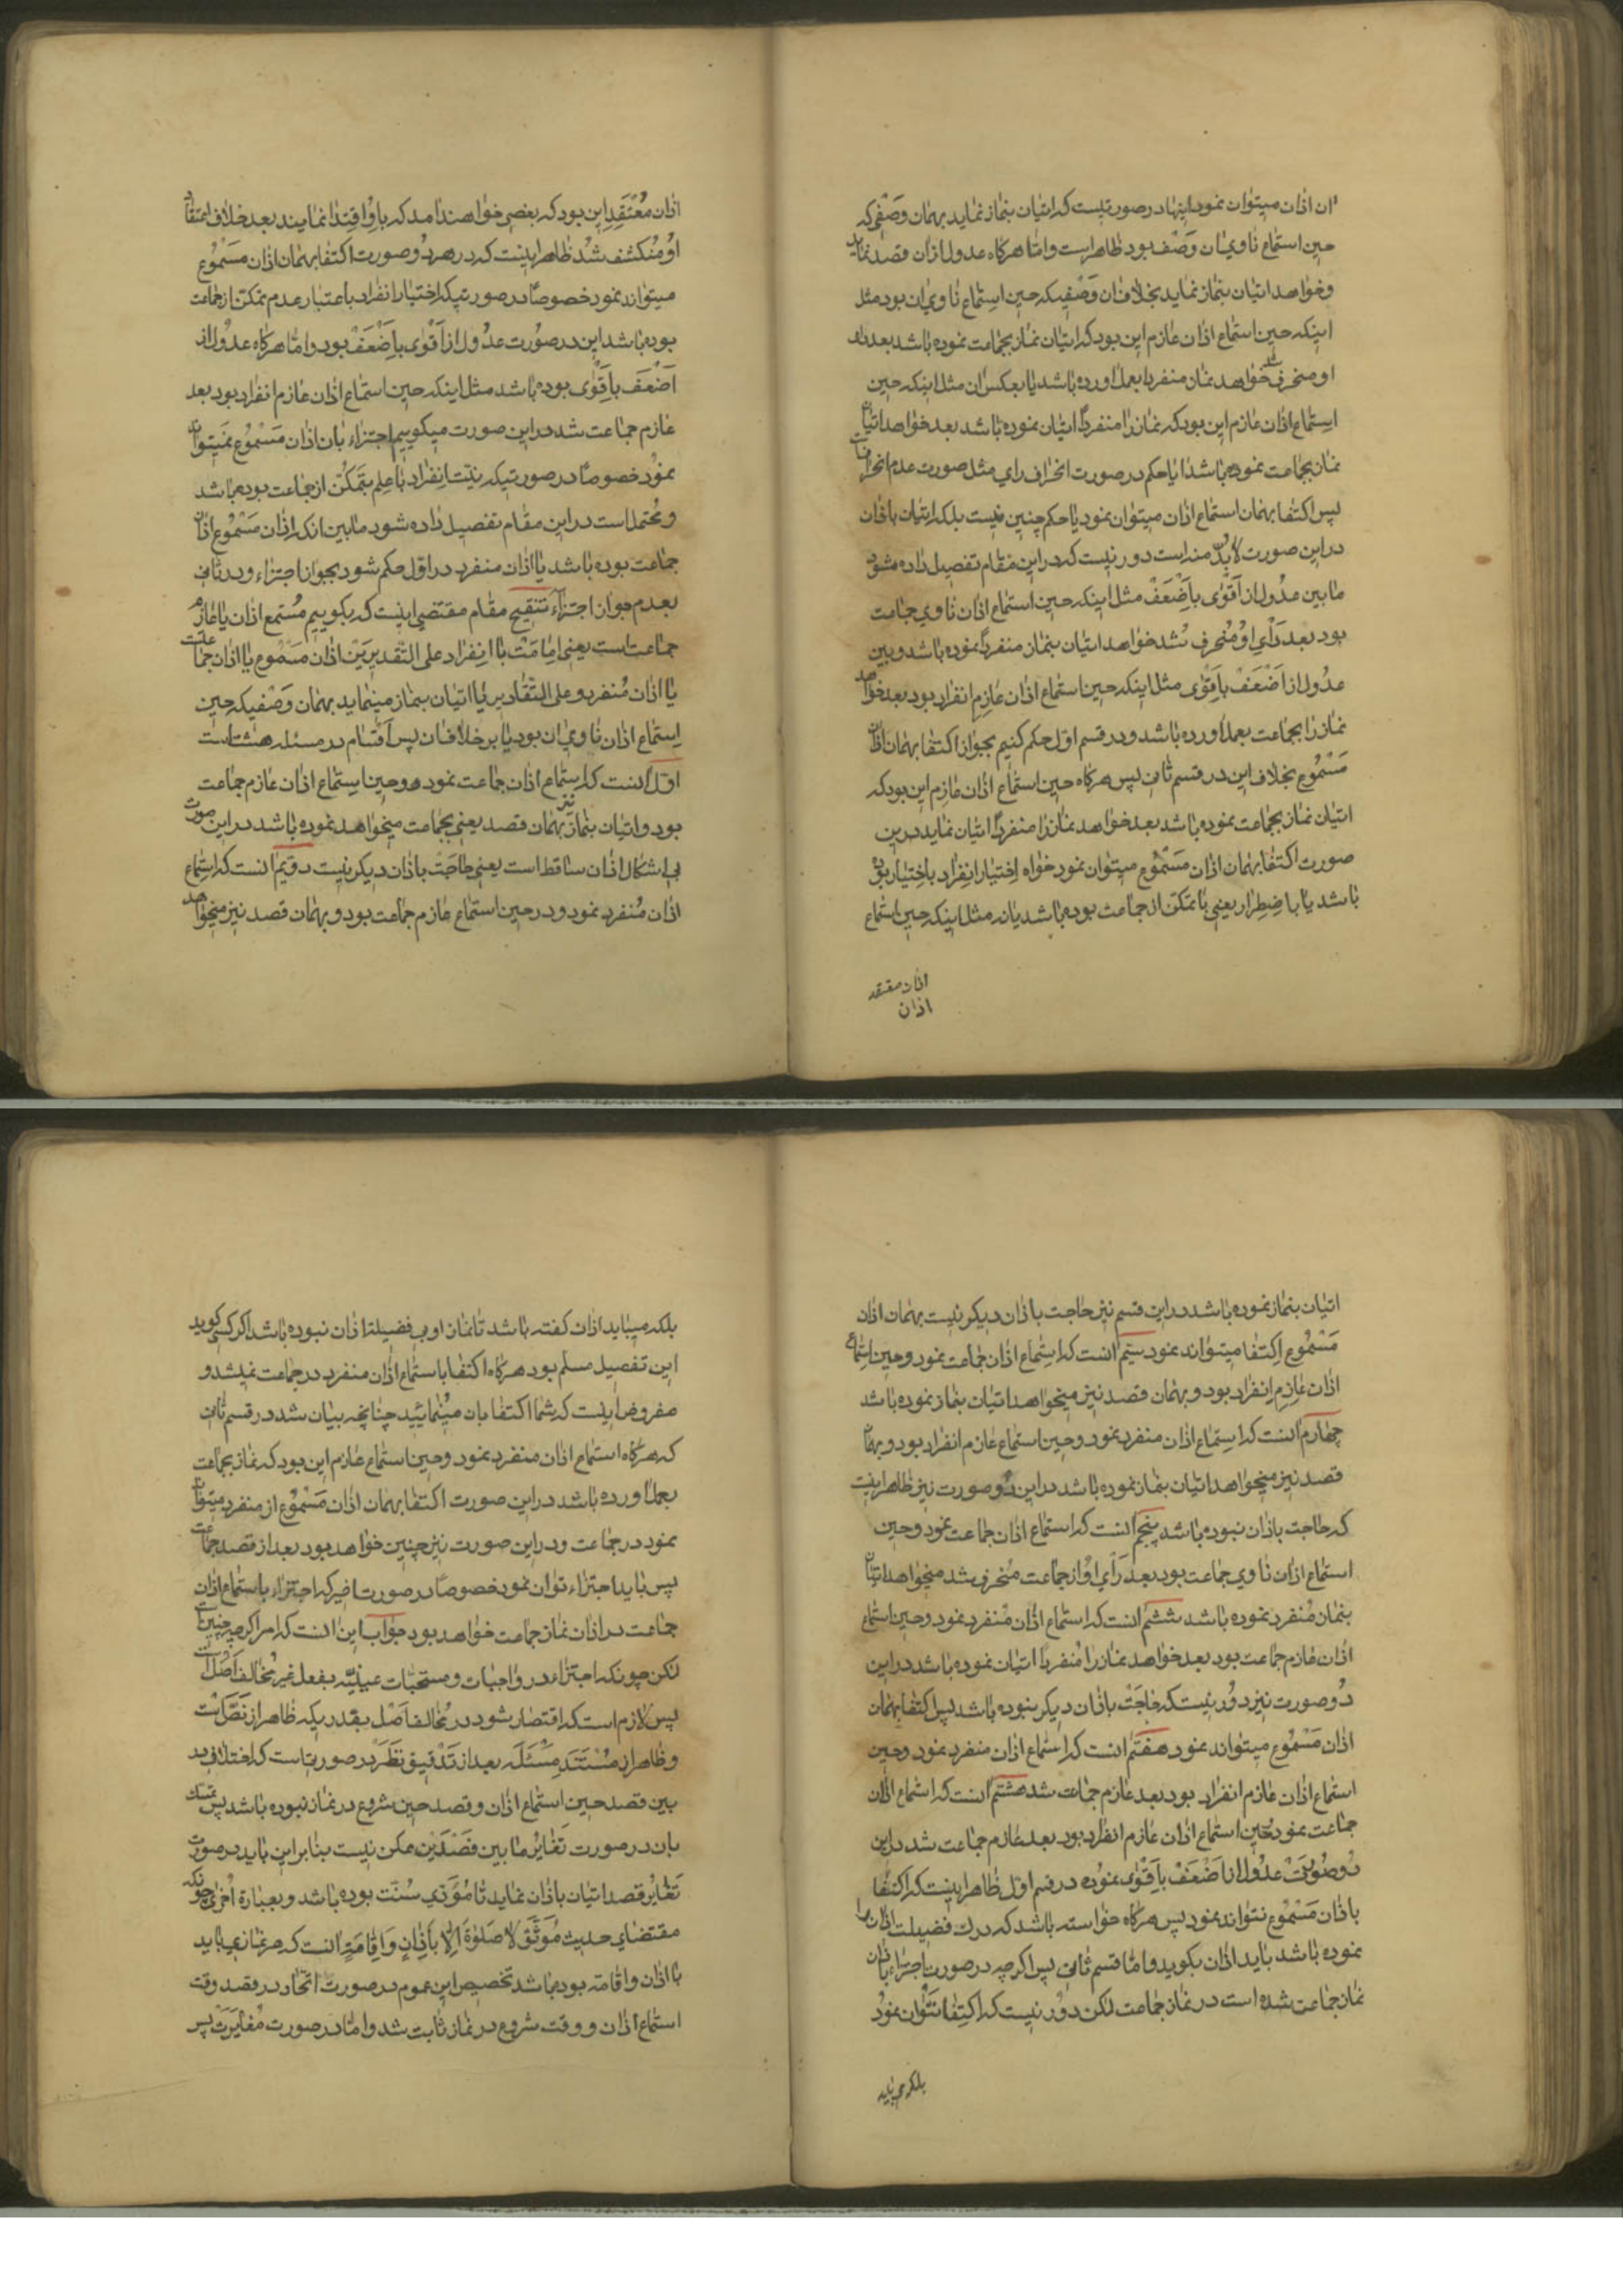 ان اذان میتوان نمود اینها در صورتیست که اتیان بنماز نماید بهمان وصفی که
حین استماع ناوی ان وصف بود ظاهر است و اما هرگاه عدول ازان قصد نماید
و خواهد اتیان بنماز نماید بخلاف ان وصفیکه حین استماع ناوی ان بود مثل
اینکه حین استماع اذان عازم این بود که اتیان نماز بجماعت نموده باشد بعد رای
او منحرف شد خواهد نماز منفردا بعمل اورده باشد یا بعکس ان مثل اینکه حین
استماع اذان عازم این بود که نماز را منفردا اتیان نموده باشد بعد خواهد اتیان
نماز بجماعت نموده باشد ایا حکم در صورت انحراف رای مثل صورت عدم انحرافست
پس اکتفا بهمان استماع اذان میتوان نمود یا حکم چنین نیست بلکه اتیان باذان
در این صورت لابد منه است دور نیست که در این مقام تفصیل داده شود
ما بین عدول از اقوی باضعف مثل اینکه حین استماع اذان ناوی جماعت
بود بعد رأی او منحرف شد خواهد اتیان بنماز منفردا نموده باشد و بین
عدول از اضعف باقوی مثل اینکه حین استماع اذان عازم انفراد بود بعد خواهد
نماز را بجماعت بعمل اورده باشد و در قسم اول حکم کنیم بجواز اکتفا بهمان اذان
مسموع بخلاف این در قسم ثانی پس هرگاه حین استماع اذان عازم این بود که
اتیان نماز بجماعت نموده باشد بعد خواهد نماز را منفردا اتیان نماید درین
صورت اکتفا بهمان اذان مسموع میتوان نمود خواه اختیار انفراد باختیار بوده
باشد یا باضطرار یعنی با تمکن از جماعت بوده باشد یا نه مثل اینکه حین استماع
اذان معتقد
اذان
اذان معتقد این بود که بعضی خواهند امد که باو اقتدا نمایند بعد خلاف اعتقاد
او منکشف شد ظاهر اینست که در هر دو صورت اکتفا بهمان اذان مسموع
میتواند نمود خصوصا در صورتیکه اختیار انفراد باعتبار عدم تمکن از جماعت
بوده باشد این در صورت عدول از اقوی باضعف بود و اما هرگاه عدول از
اضعف باقوی بوده باشد مثل اینکه حین استماع اذان عازم انفراد بود بعد
عازم جماعت شد در این صورت میگوییم اجتزاء بان اذان مسموع نمیتوان
نمود خصوصا در صورتیکه نیت انفراد با علم بتمکن از جماعت بوده باشد
و محتمل است در این مقام تفصیل داده شود ما بین انکه اذان مسموع اذان
جماعت بوده باشد یا اذان منفرد در اول حکم شود بجواز اجتزاء و در ثانی
بعدم جواز اجتزاء تنقیح مقام مقتضی اینست که بگوییم مستمع اذان یا عازم
جماعت است یعنی امامت یا انفراد علی التقدیرین اذان مسموع یا اذان جماعت است
یا اذان منفرد و علی التقادیر یا اتیان بنماز مینماید بهمان وصفیکه حین
استماع اذان ناوی ان بود یا بر خلاف ان پس اقسام در مسئله هشت است
اول انست که استماع اذان جماعت نموده و حین استماع اذان عازم جماعت
بود و اتیان بنماز نیز بهمان قصد یعنی بجماعت میخواهد نموده باشد در این صورت
بی اشکال اذان ساقط است یعنی حاجت باذان دیگر نیست دویم انست که استماع
اذان منفرد نمود و در حین استماع عازم جماعت بود و بهمان قصد نیز میخواهد
اتیان بنماز نموده باشد در این قسم نیز حاجت باذان دیگر نیست بهمان اذان
مسموع اکتفا میتواند نمود سیم انست که استماع اذان جماعت نمود و حین استماع
اذان عازم انفراد بود و بهمان قصد نیز میخواهد اتیان بنماز نموده باشد
چهارم انست که استماع اذان منفرد نمود و حین استماع عازم انفراد بود و بهمان
قصد نیز میخواهد اتیان بنماز نموده باشد در این دو صورت نیز ظاهر اینست
که حاجت باذان نبوده باشد پنجم انست که استماع اذان جماعت نمود و حین
استماع اذان ناوی جماعت بود بعد رأی او از جماعت منحرف شد میخواهد اتیان
بنماز منفرد نموده باشد ششم انست که استماع اذان منفرد نمود و حین استماع
اذان عازم جماعت بود بعد خواهد نماز را منفردا اتیان نموده باشد در این
دو صورت نیز دور نیست که حاجت باذان دیگر نبوده باشد پس اکتفا بهمان
اذان مسموع میتواند نمود هفتم انست که استماع اذان منفرد نمود و حین
استماع اذان عازم انفراد بود بعد عازم جماعت شد هشتم انست که استماع اذان
جماعت نمود حین استماع اذان عازم انفراد بود بعد عازم جماعت شد در این
دو صورت عدول از اضعف باقوی نموده در قسم اول ظاهر اینست که اکتفا
باذان مسموع نتواند نمود پس هرگاه خواسته باشد که درک فضیلت اذان را
نموده باشد باید اذان بگوید و اما قسم ثانی پس اگرچه در صورت اجزاء باذان
نماز جماعت شده است در نماز جماعت لکن دور نیست که اکتفا نتوان نمود
بلکه می باید
بلکه میباید اذان گفته باشد تا نماز او بی فضیلت اذان نبوده باشد اگر کسی گوید
این تفصیل مسلم بود هرگاه اکتفا باستماع اذان منفرد در جماعت نمیشد و
مفروض اینست که شما اکتفا بان مینمائید چنانچه بیان شد در قسم ثانی
که هرگاه استماع اذان منفرد نمود و حین استماع عازم این بود که نماز بجماعت
بعمل اورده باشد در این صورت اکتفا بهمان اذان مسموع از منفرد میتوان
نمود در جماعت و در این صورت نیز چنین خواهد بود بعد از قصد جماعت
پس باید اجتزاء توان نمود خصوصا در صورت اخیر که اجتزاء باستماع اذان
جماعت در اذان نماز جماعت خواهد بود جواب این انست که امر اگرچه چنین است
لکن چونکه اجتزاء در واجبات و مستحبات عینیه بفعل غیر مخالف اصل است
پس لازم است که اقتصار شود در مخالف اصل بقدریکه ظاهر از نص است
و ظاهر از مستند مسئله بعد از تدقیق نظر در صورتیست که اختلاف در
بین قصد حین استماع اذان و قصد حین شروع در نماز نبوده باشد پس تمسک
بان در صورت تغایر ما بین قصدین ممکن نیست بنا بر این باید در صورت
تغایر قصد اتیان باذان نماید تا مؤدی سنت بوده باشد و بعبارة اخری چونکه
مقتضای حدیث موثق لا صلوة الا باذان و اقامة انست که هر نمازی باید
با اذان و اقامه بوده باشد تخصیص این عموم در صورت اتحاد در قصد وقت
استماع اذان و وقت شروع در نماز ثابت شد و اما در صورت مغایرت پس